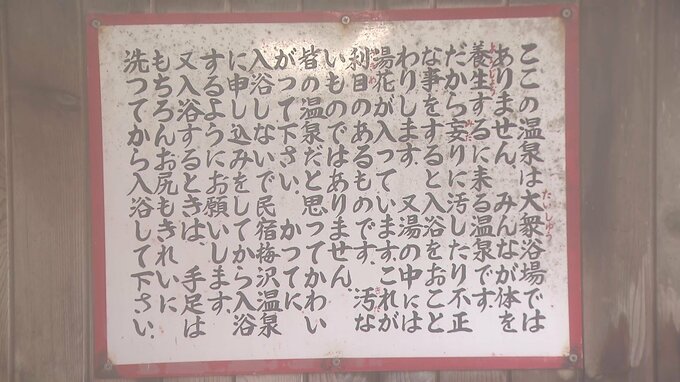 ここの温泉は大衆浴場では
ありません みんなが体を
養生するに来る温泉です
だから妄りに汚したり不正
な事をすると入浴をおこと
わりします. 又湯の中には
湯花が入っています.これが
利目のあるものです. 汚な
いものではありません
皆の温泉だと思ってかわい
がって下さい. かってに
入浴しないで民宿梅沢温泉
に申し込みをしてから入浴
するようにお願いします.
又入浴するときは、手足は
もちろんお尻もきれいに
洗ってから入浴して下さい.